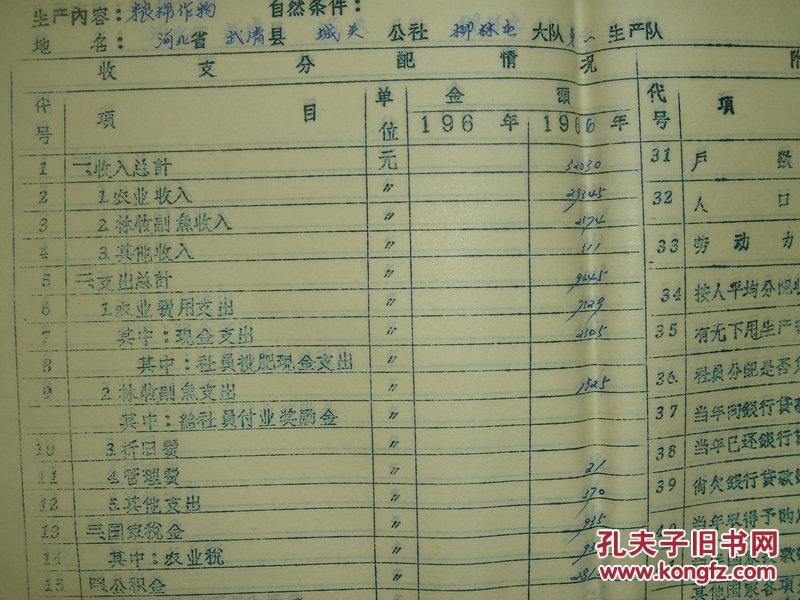 生产内容：粮棉作物 自然条件：
地名：河北省 武清县 城关 公社 大队 第一 生产队
收支分配情况 附
代号 项目 单位 金额 代号 项
196 年 1966 年
1 一、收入总计 元 32030 31 户数
2 1.农业收入 〃 29345 32 人口
3 2.林牧副鱼收入 〃 2374
4 3.其他收入 〃 311 33 劳动力
5 二、支出总计 〃 9445 34 按人平均分配
6 1.农业费用支出 〃 7529
7 其中：现金支出 〃 2305 35 有无下甩生产
8 其中：社员投肥现金支出 〃 36 社员分配是否
9 2.林牧副鱼支出 〃 1525
其中：给社员付业奖励金 37 当年向银行贷款
10 3.折旧费 〃 38 当年已还银行
11 4.管理费 〃 21
12 5.其他支出 〃 370 39 尚欠银行贷款
13 三、国家税金 〃 935 40 当年取得予购
14 其中：农业税 〃
15 四、公积金 〃 281
其他国家各项
孔夫子旧书网
www.kongfz.com